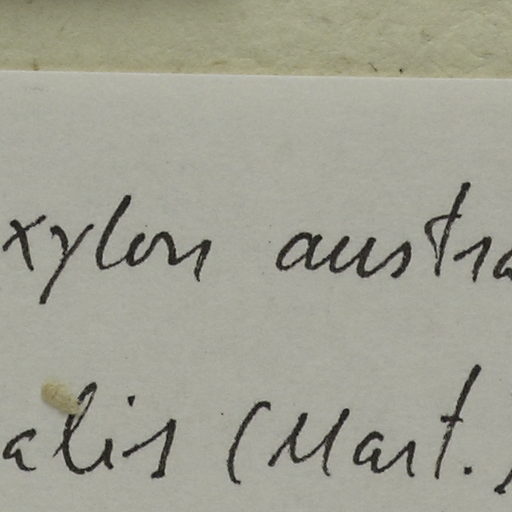 xylon austra
alis (Mart.